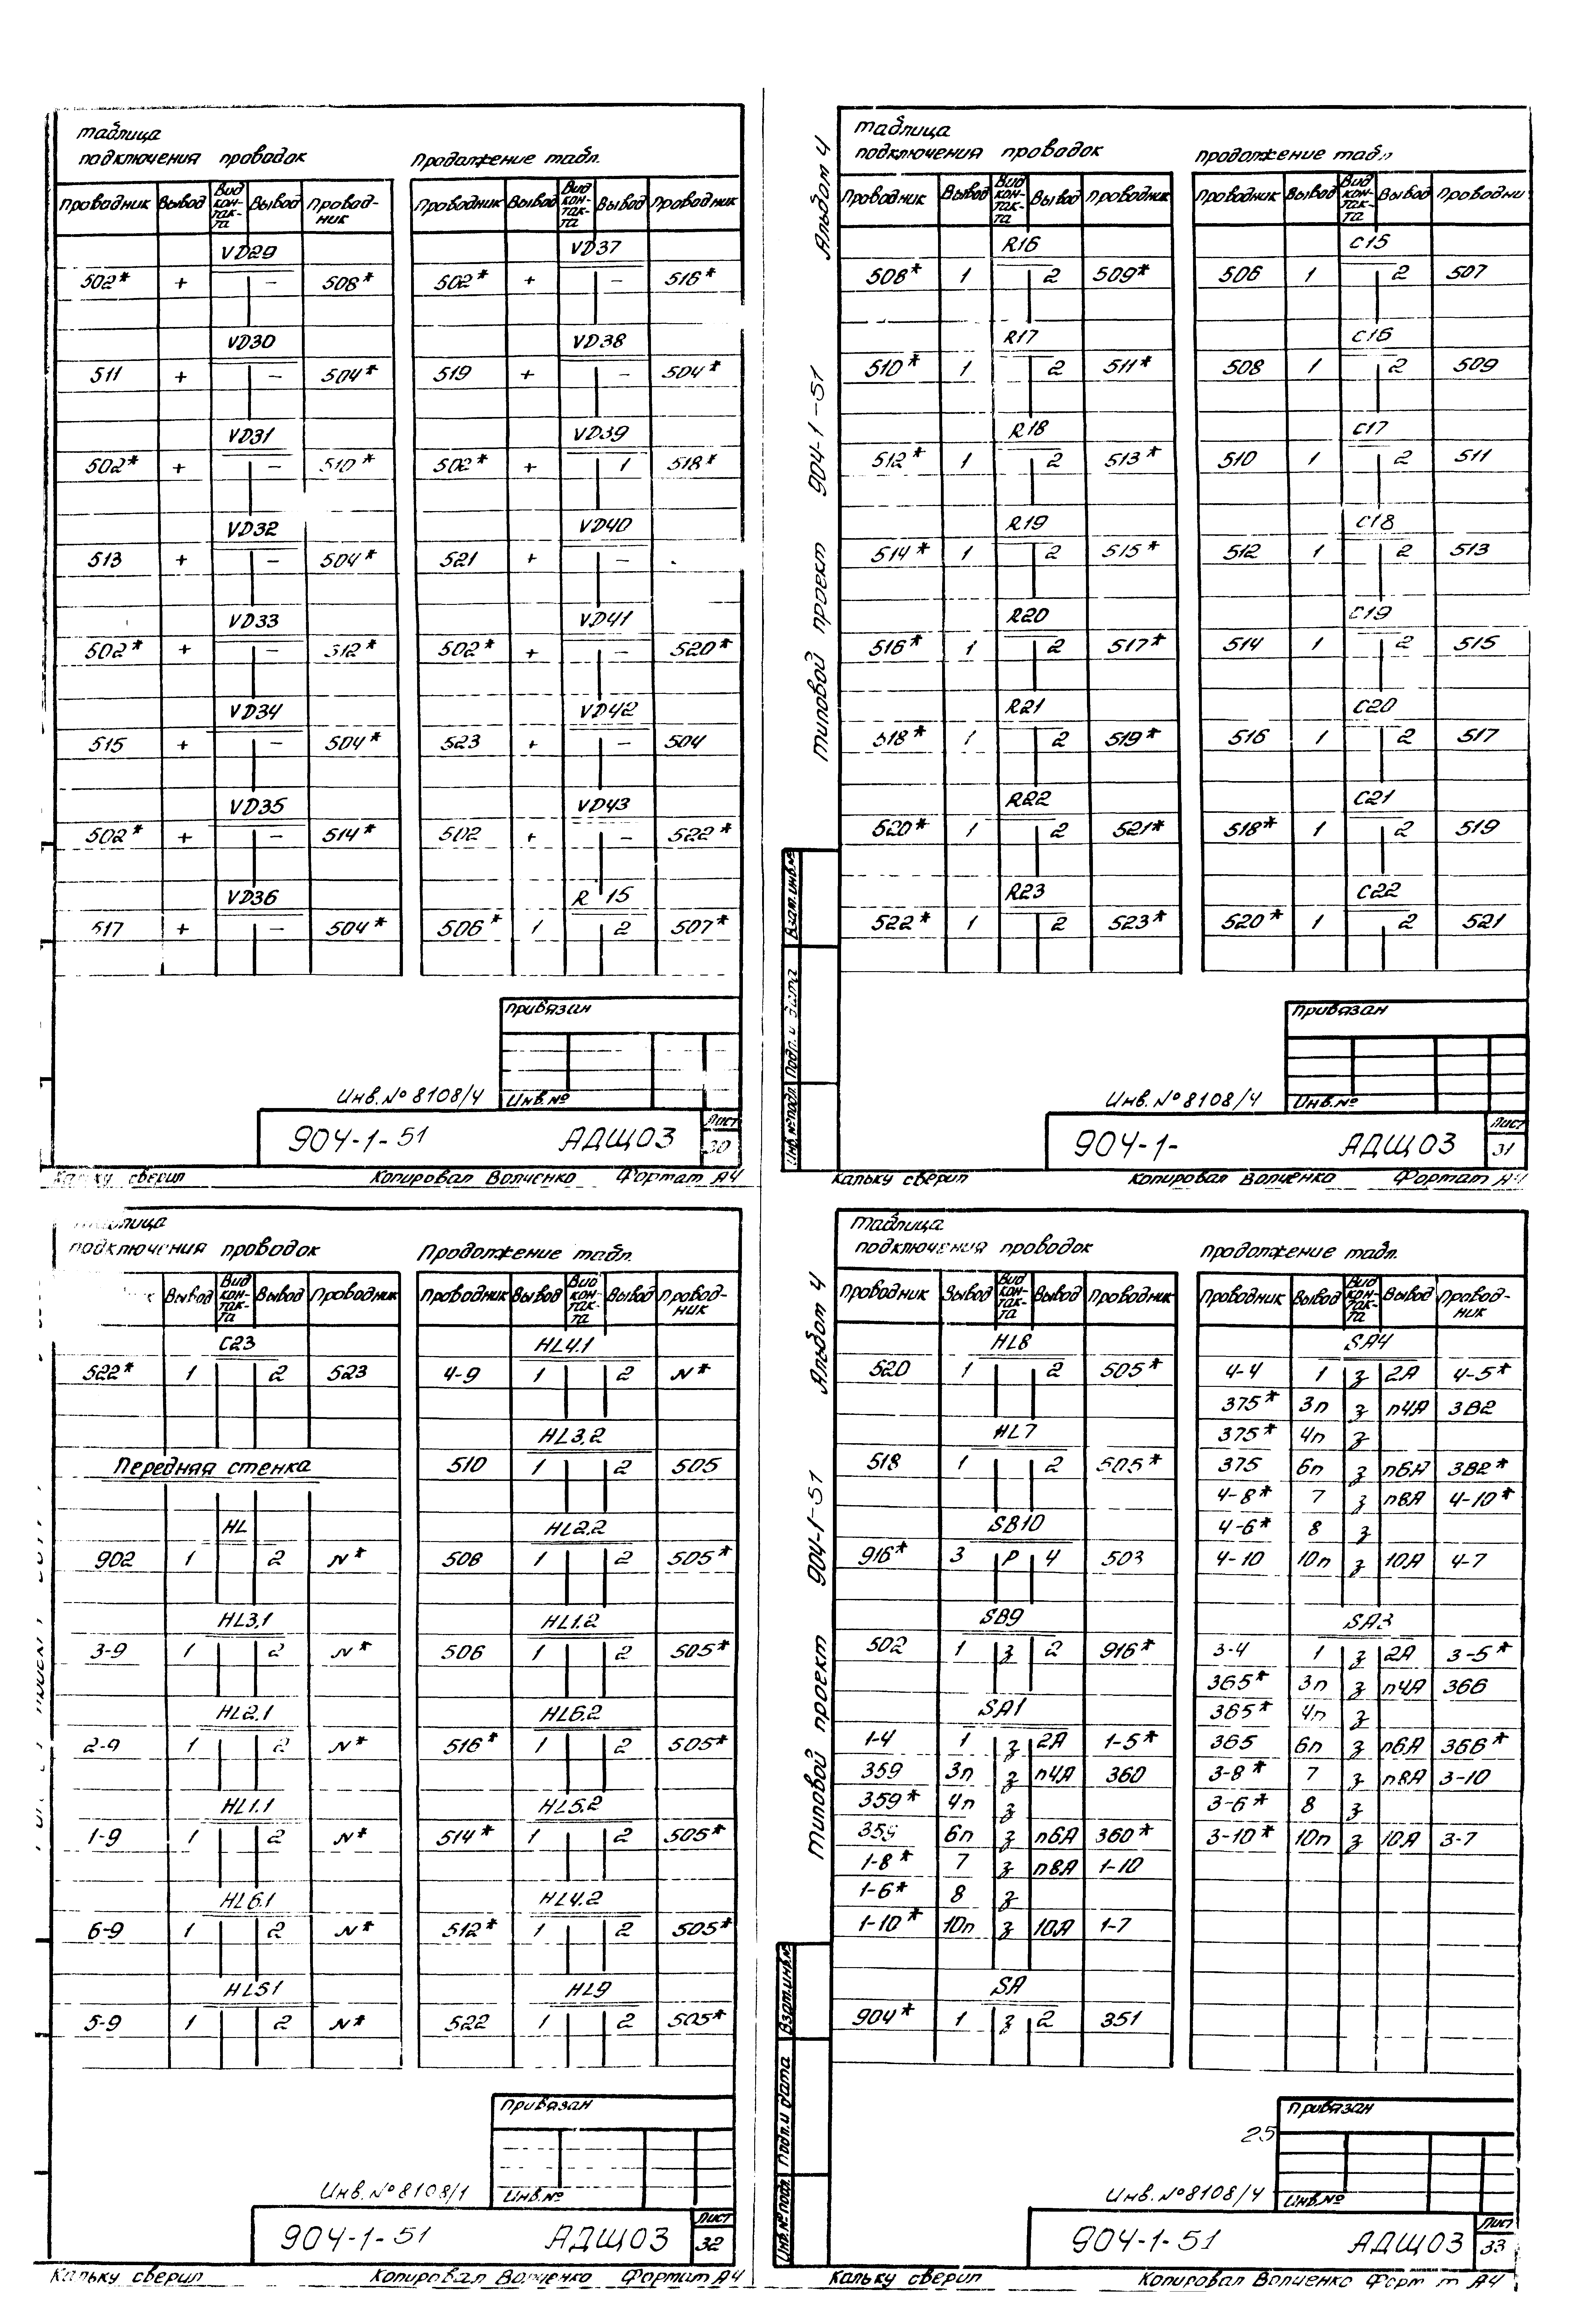 таблица
подключения проводок
Продолжение табл.
Проводник Вывод Вид кон-так-та Вывод Провод-ник
Проводник Вывод Вид кон-так-та Вывод Проводник
VD29 VD37
502* + – 508* 502* + – 516*
VD30 VD38
511 + – 504* 519 + – 504*
VD31 VD39
502* + – 510* 502* + 1 518*
VD32 VD40
513 + – 504* 521 + –
VD33 VD41
502* + – 512* 502* + – 520*
VD34 VD42
515 + – 504* 523 + – 504
VD35 VD43
502* + – 514* 502 + – 522*
VD36 R 15
517 + – 504* 506* 1 2 507*
Привязан
Инв.№ 8108/4 Инв.№
904-1-51 АДЩ03 Лист 30
Кальку сверил Копировал Волченко Формат А4
Альбом 4
Типовой проект 904-1-51
таблица
подключения проводок
Продолжение табл
Проводник Вывод Вид кон-так-та Вывод Проводник
Проводник Вывод Вид кон-так-та Вывод Проводни
R16 C15
508* 1 2 509* 506 1 2 507
R17 C16
510* 1 2 511* 508 1 2 509
R18 C17
512* 1 2 513* 510 1 2 511
R19 C18
514* 1 2 515* 512 1 2 513
R20 C19
516* 1 2 517* 514 1 2 515
R21 C20
518* 1 2 519* 516 1 2 517
R22 C21
520* 1 2 521* 518* 1 2 519
R23 C22
522* 1 2 523* 520* 1 2 521
Взам.инв.№
Подп. и дата
Инв.№ подл.
Привязан
Инв.№ 8108/4 Инв.№
904-1- АДЩ03 Лист 31
Кальку сверил Копировал Волченко Формат А4
таблица
подключения проводок
Продолжение табл.
Вывод Вид кон-так-та Вывод Проводник
Проводник Вывод Вид кон-так-та Вывод Провод-ник
C23 HL4.1
522* 1 2 523 4-9 1 2 N*
HL3.2
Передняя стенка 510 1 2 505
HL HL2.2
902 1 2 N* 508 1 2 505*
HL3.1 HL1.2
3-9 1 2 N* 506 1 2 505*
HL2.1 HL6.2
2-9 1 2 N* 516* 1 2 505*
HL1.1 HL5.2
1-9 1 2 N* 514* 1 2 505*
HL6.1 HL4.2
6-9 1 2 N* 512* 1 2 505*
HL51 HL9
5-9 1 2 N* 522 1 2 505*
Привязан
Инв.№ 8108/1 Инв.№
904-1-51 АДЩ03 Лист 32
Кальку сверил Копировал Волченко Формат А4
Альбом 4
Типовой проект 904-1-51
таблица
подключения проводок
продолжение табл.
Проводник Вывод Вид кон-так-та Вывод Проводник
Проводник Вывод Вид кон-так-та Вывод Провод-ник
HL8 SA4
520 1 2 505* 4-4 1 з 2А 4-5*
375* 3п з п4А 3В2
HL7 375* 4п з
518 1 2 505* 375 6п з п6А 3В2*
4-8* 7 з п8А 4-10*
SB10 4-6* 8 з
916* 3 р 4 503 4-10 10п з 10А 4-7
SB9 SA3
502 1 з 2 916* 3-4 1 з 2А 3-5*
365* 3п з п4А 366
SA1 365* 4п з
1-4 1 з 2А 1-5* 365 6п з п6А 366*
359 3п з п4А 360 3-8* 7 з п8А 3-10
359* 4п з 3-6* 8 з
359 6п з п6А 360* 3-10* 10п з 10А 3-7
1-8* 7 з п8А 1-10
1-6* 8 з
1-10* 10п з 10А 1-7
SA
904* 1 з 2 351
Взам.инв.№
Подп. и дата
Инв.№ подл.
Привязан
25
Инв.№ 8108/4 Инв.№
904-1-51 АДЩ03 Лист 33
Кальку сверил Копировал Волченко Форм т А4